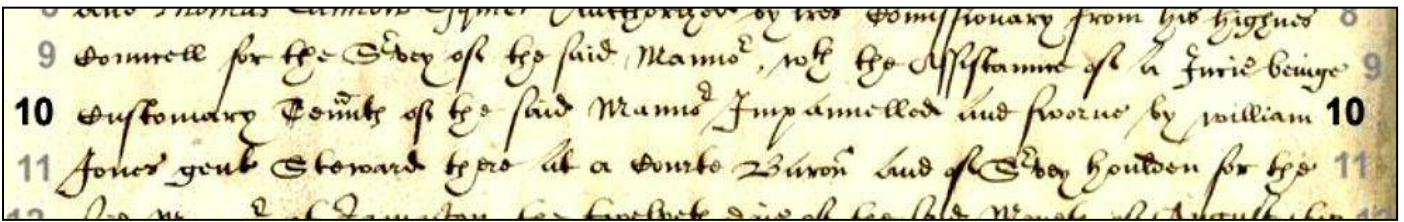 and Thomas Esquier Authorized by Commissionary from his highnes 8
9 Councell for the Svey of the said Manno, wth the Assistannce of a Jurie beinge 9
10 Customary Tennts of the said Manno Impannelled and sworne by william 10
11 Jones gent Steward there at a Courte Baron and of Svey houlden for the 11